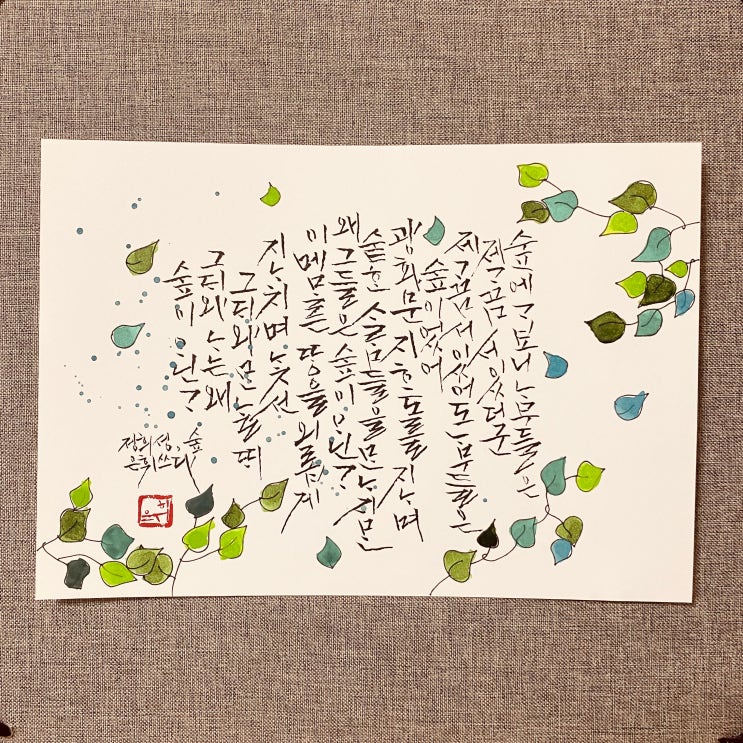 숲에 가 보니 나무들은
제가끔 서 있더군
제가끔 서 있어도 나무들은
숲이었어
광화문 지하도를 지나며
숱한 사람들을 만나지만
왜 그들은 숲이 아닌가
이 메마른 땅을 외롭게
지나치며 낯선
그대와 만날 때
그대와 나는 왜
숲이 아닌가?
정희성, 숲
은휘 쓰다
은휘